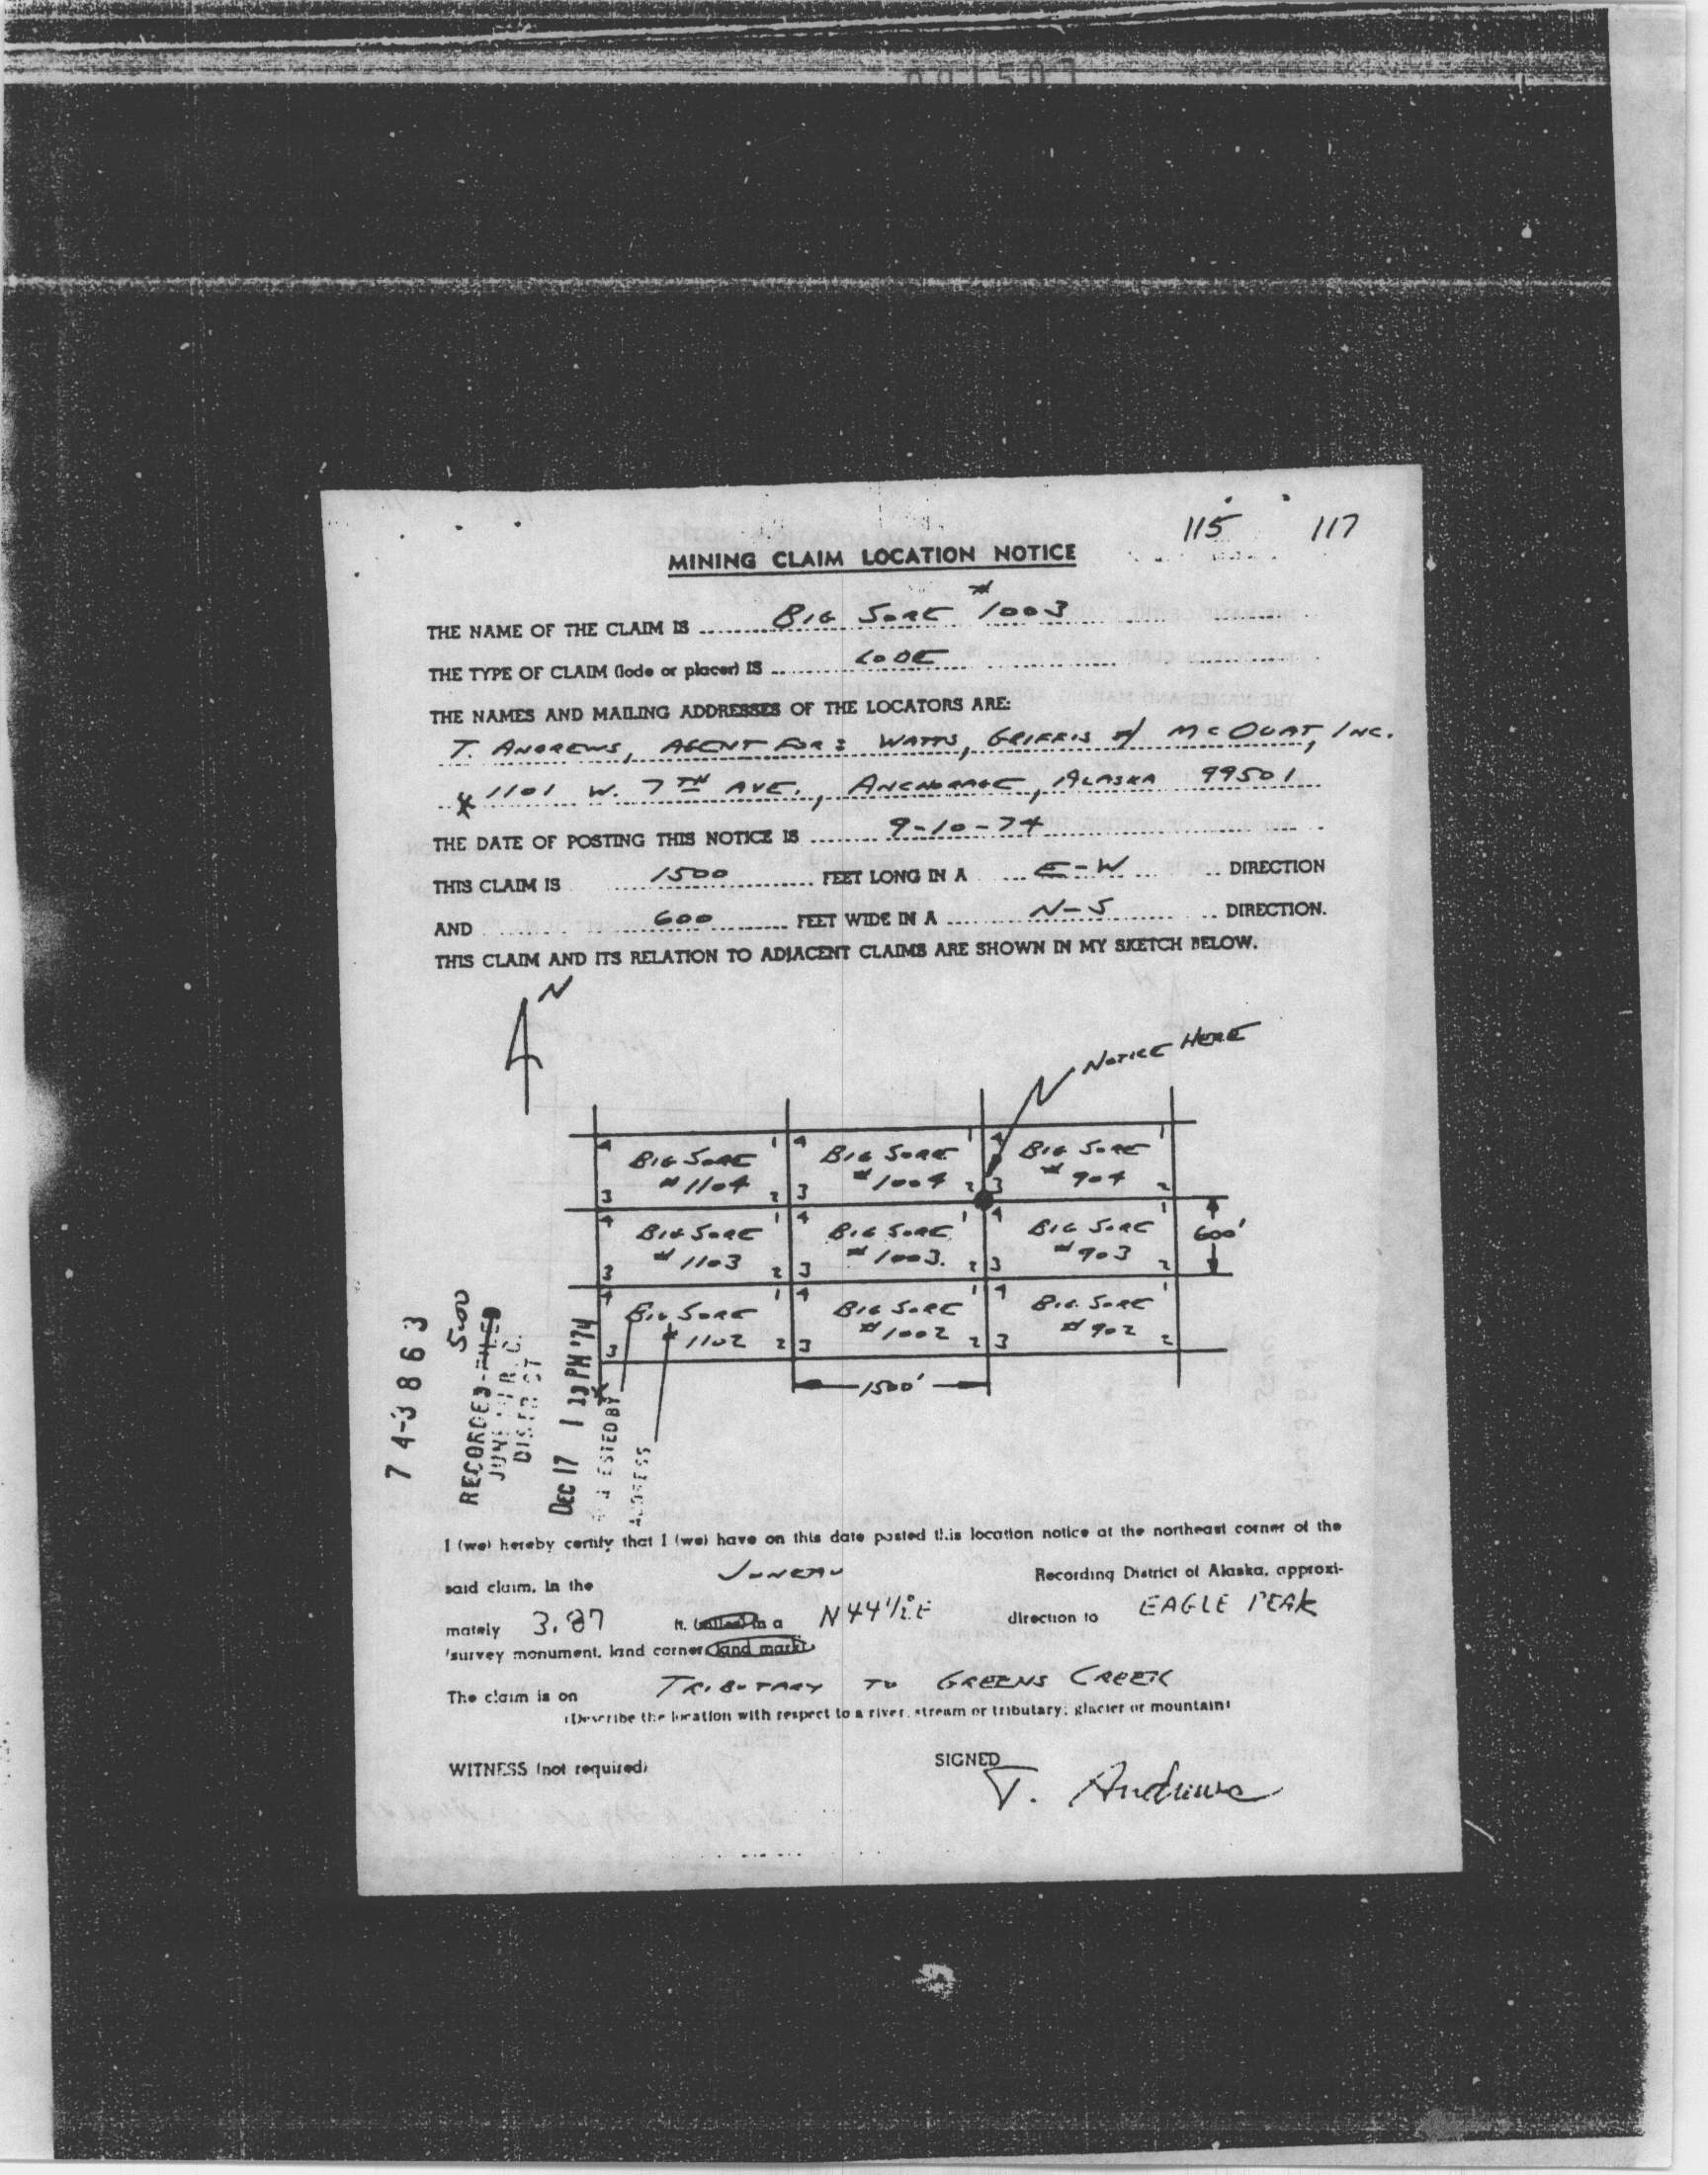 115 117
MINING CLAIM LOCATION NOTICE
THE NAME OF THE CLAIM IS BIG SORE #1003
THE TYPE OF CLAIM (lode or placer) IS LODE
THE NAMES AND MAILING ADDRESSES OF THE LOCATORS ARE:
T. ANDREWS, AGENT FOR: WATTS, GRIFFIS & MCOUAT, INC.
1101 W. 7TH AVE., ANCHORAGE, ALASKA 99501
THE DATE OF POSTING THIS NOTICE IS 9-10-74
THIS CLAIM IS 1500 FEET LONG IN A E-W DIRECTION
AND 600 FEET WIDE IN A N-S DIRECTION.
THIS CLAIM AND ITS RELATION TO ADJACENT CLAIMS ARE SHOWN IN MY SKETCH BELOW.
N
NOTICE HERE
4 1 4 1 4 1
BIG SORE BIG SORE BIG SORE
#1104 #1004 #904
3 2 3 2 3 2
4 1 4 1 4 1
BIG SORE BIG SORE BIG SORE 600'
#1103 #1003. #903
3 2 3 2 3 2
4 1 4 1 4 1
BIG SORE BIG SORE BIG SORE
#1102 #1002 #902
3 2 3 2 3 2
1500'
74-3863
5.00
RECORDED-FILED
DEC 17 1 PM '74
ADDRESS
I (we) hereby certify that I (we) have on this date posted this location notice at the northeast corner of the
said claim, in the JUNEAU Recording District of Alaska, approxi-
mately 3.87 ft. (miles) in a N44½°E direction to EAGLE PEAK
(survey monument, land corner, land mark).
The claim is on TRIBUTARY TO GREENS CREEK
(Describe the location with respect to a river, stream or tributary; glacier or mountain)
WITNESS (not required) SIGNED
T. Andrews